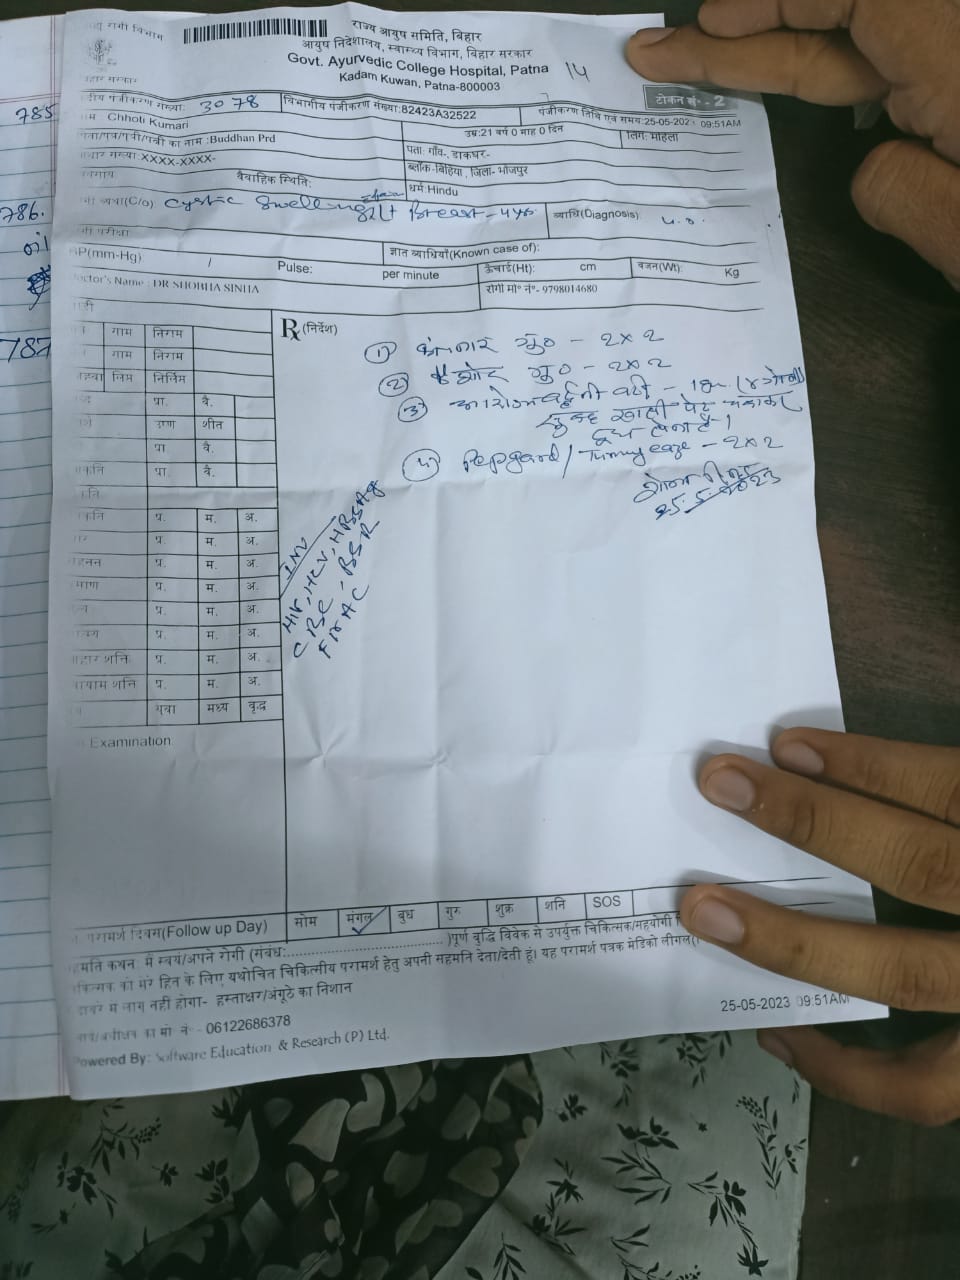 785
786.
787
राज्य आयुष समिति, बिहार
आयुष निदेशालय, स्वास्थ्य विभाग, बिहार सरकार
Govt. Ayurvedic College Hospital, Patna 14
Kadam Kuwan, Patna-800003
टोकन सं०- 2
पंजीकरण संख्या: 3078 विभागीय पंजीकरण संख्या:82423A32522 पंजीकरण तिथि एवं समय:25-05-202 09:51AM
Chhoti Kumari उम्र:21 वर्ष 0 माह 0 दिन लिंग: महिला
का नाम :Buddhan Prd पता: गाँव-, डाकघर-
संख्या:XXXX-XXXX- ब्लॉक-बिहिया , जिला- भोजपुर
वैवाहिक स्थिति: धर्म Hindu
(C/o) Cystic Swelling Lt Breast - 4yrs व्याधि(Diagnosis) u.s.
परीक्षा
BP(mm-Hg) / Pulse: per minute ज्ञात व्याधियाँ(Known case of):
ऊँचाई(Ht): cm वजन(Wt): Kg
Doctor's Name : DR SHOBHA SINHA रोगी मो० नं०- 9798014680
Rx (निर्देश)
गाम निराम
गाम निराम
लिप्त निर्लिप्त
प्रा. वै.
उष्ण शीत
प्रा वै.
प्रा. वै.
प्र. म. अ.
प्र. म. अ.
प्र. म. अ.
प्र. म. अ.
प्र. म. अ.
प्र. म. अ.
प्र. म. अ.
प्र. म. अ.
युवा मध्य वृद्ध
Examination
① कांचनार गु० - 2x2
② गु० - 2x2
③ आरोग्यवर्द्धनी वटी - (४ गोली)
सुबह खाली पेट
दूध लेना है।
④ Pepgard / Tummy eaze - 2x2
25.5.2023
INV
HIV, HCV, HBSAg
CBC, BSR
FNAC
परामर्श दिवस(Follow up Day) सोम मंगल बुध गुरु शुक्र शनि SOS
कथन में स्वयं/अपने रोगी (संबंध: )पूर्ण बुद्धि विवेक से उपर्युक्त चिकित्सक/सहयोगी
को मेरे हित के लिए यथोचित चिकित्सीय परामर्श हेतु अपनी सहमति देता/देती हूं। यह परामर्श पत्रक मेडिको लीगल(
में लागू नहीं होगा- हस्ताक्षर/अंगूठे का निशान
का मो नं - 06122686378
25-05-2023 09:51AM
Powered By: Software Education & Research (P) Ltd.